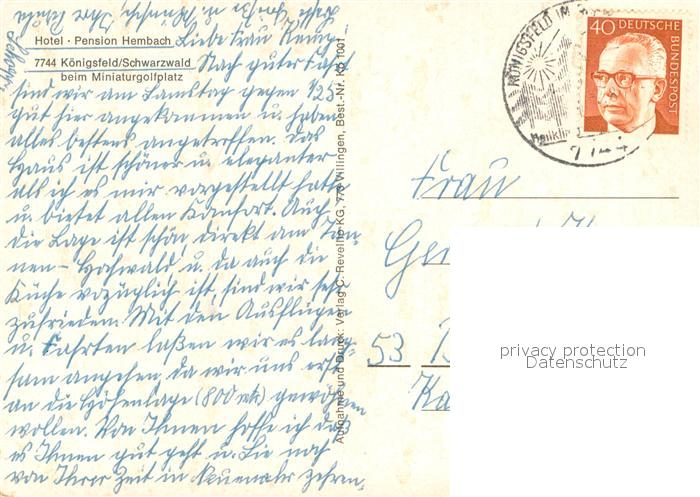 Hotel · Pension Hembach
7744 Königsfeld/Schwarzwald
beim Miniaturgolfplatz
Liebe Frau
Nach guter Fahrt
sind wir am Samstag gegen 1/25
gut hier angekommen u. haben
alles bestens angetroffen. Das
Haus ist schöner u. eleganter
als ich es mir vorgestellt hatte
u. bietet allen Komfort. Auch
die Lage ist schön, direkt am Tan-
nen-Hochwald u. da auch die
Küche vorzüglich ist, sind wir sehr
zufrieden. Mit den Ausflügen
u. Fahrten laßen wir es lang-
sam angehen, da wir uns erst
an die Höhenlage (800 mtr) gewöhnen
wollen. Von Ihnen hoffe ich daß
es Ihnen gut geht u. Sie noch
von Ihrer Zeit in Neuenahr zehren.
Aufnahme und Druck: Verlag C. Revellio KG, 773 Villingen, Best.-Nr. Kö 1001
KÖNIGSFELD IM
Heilkli
40 DEUTSCHE
BUNDESPOST
Frau
Ge
53
Ka
privacy protection
Datenschutz